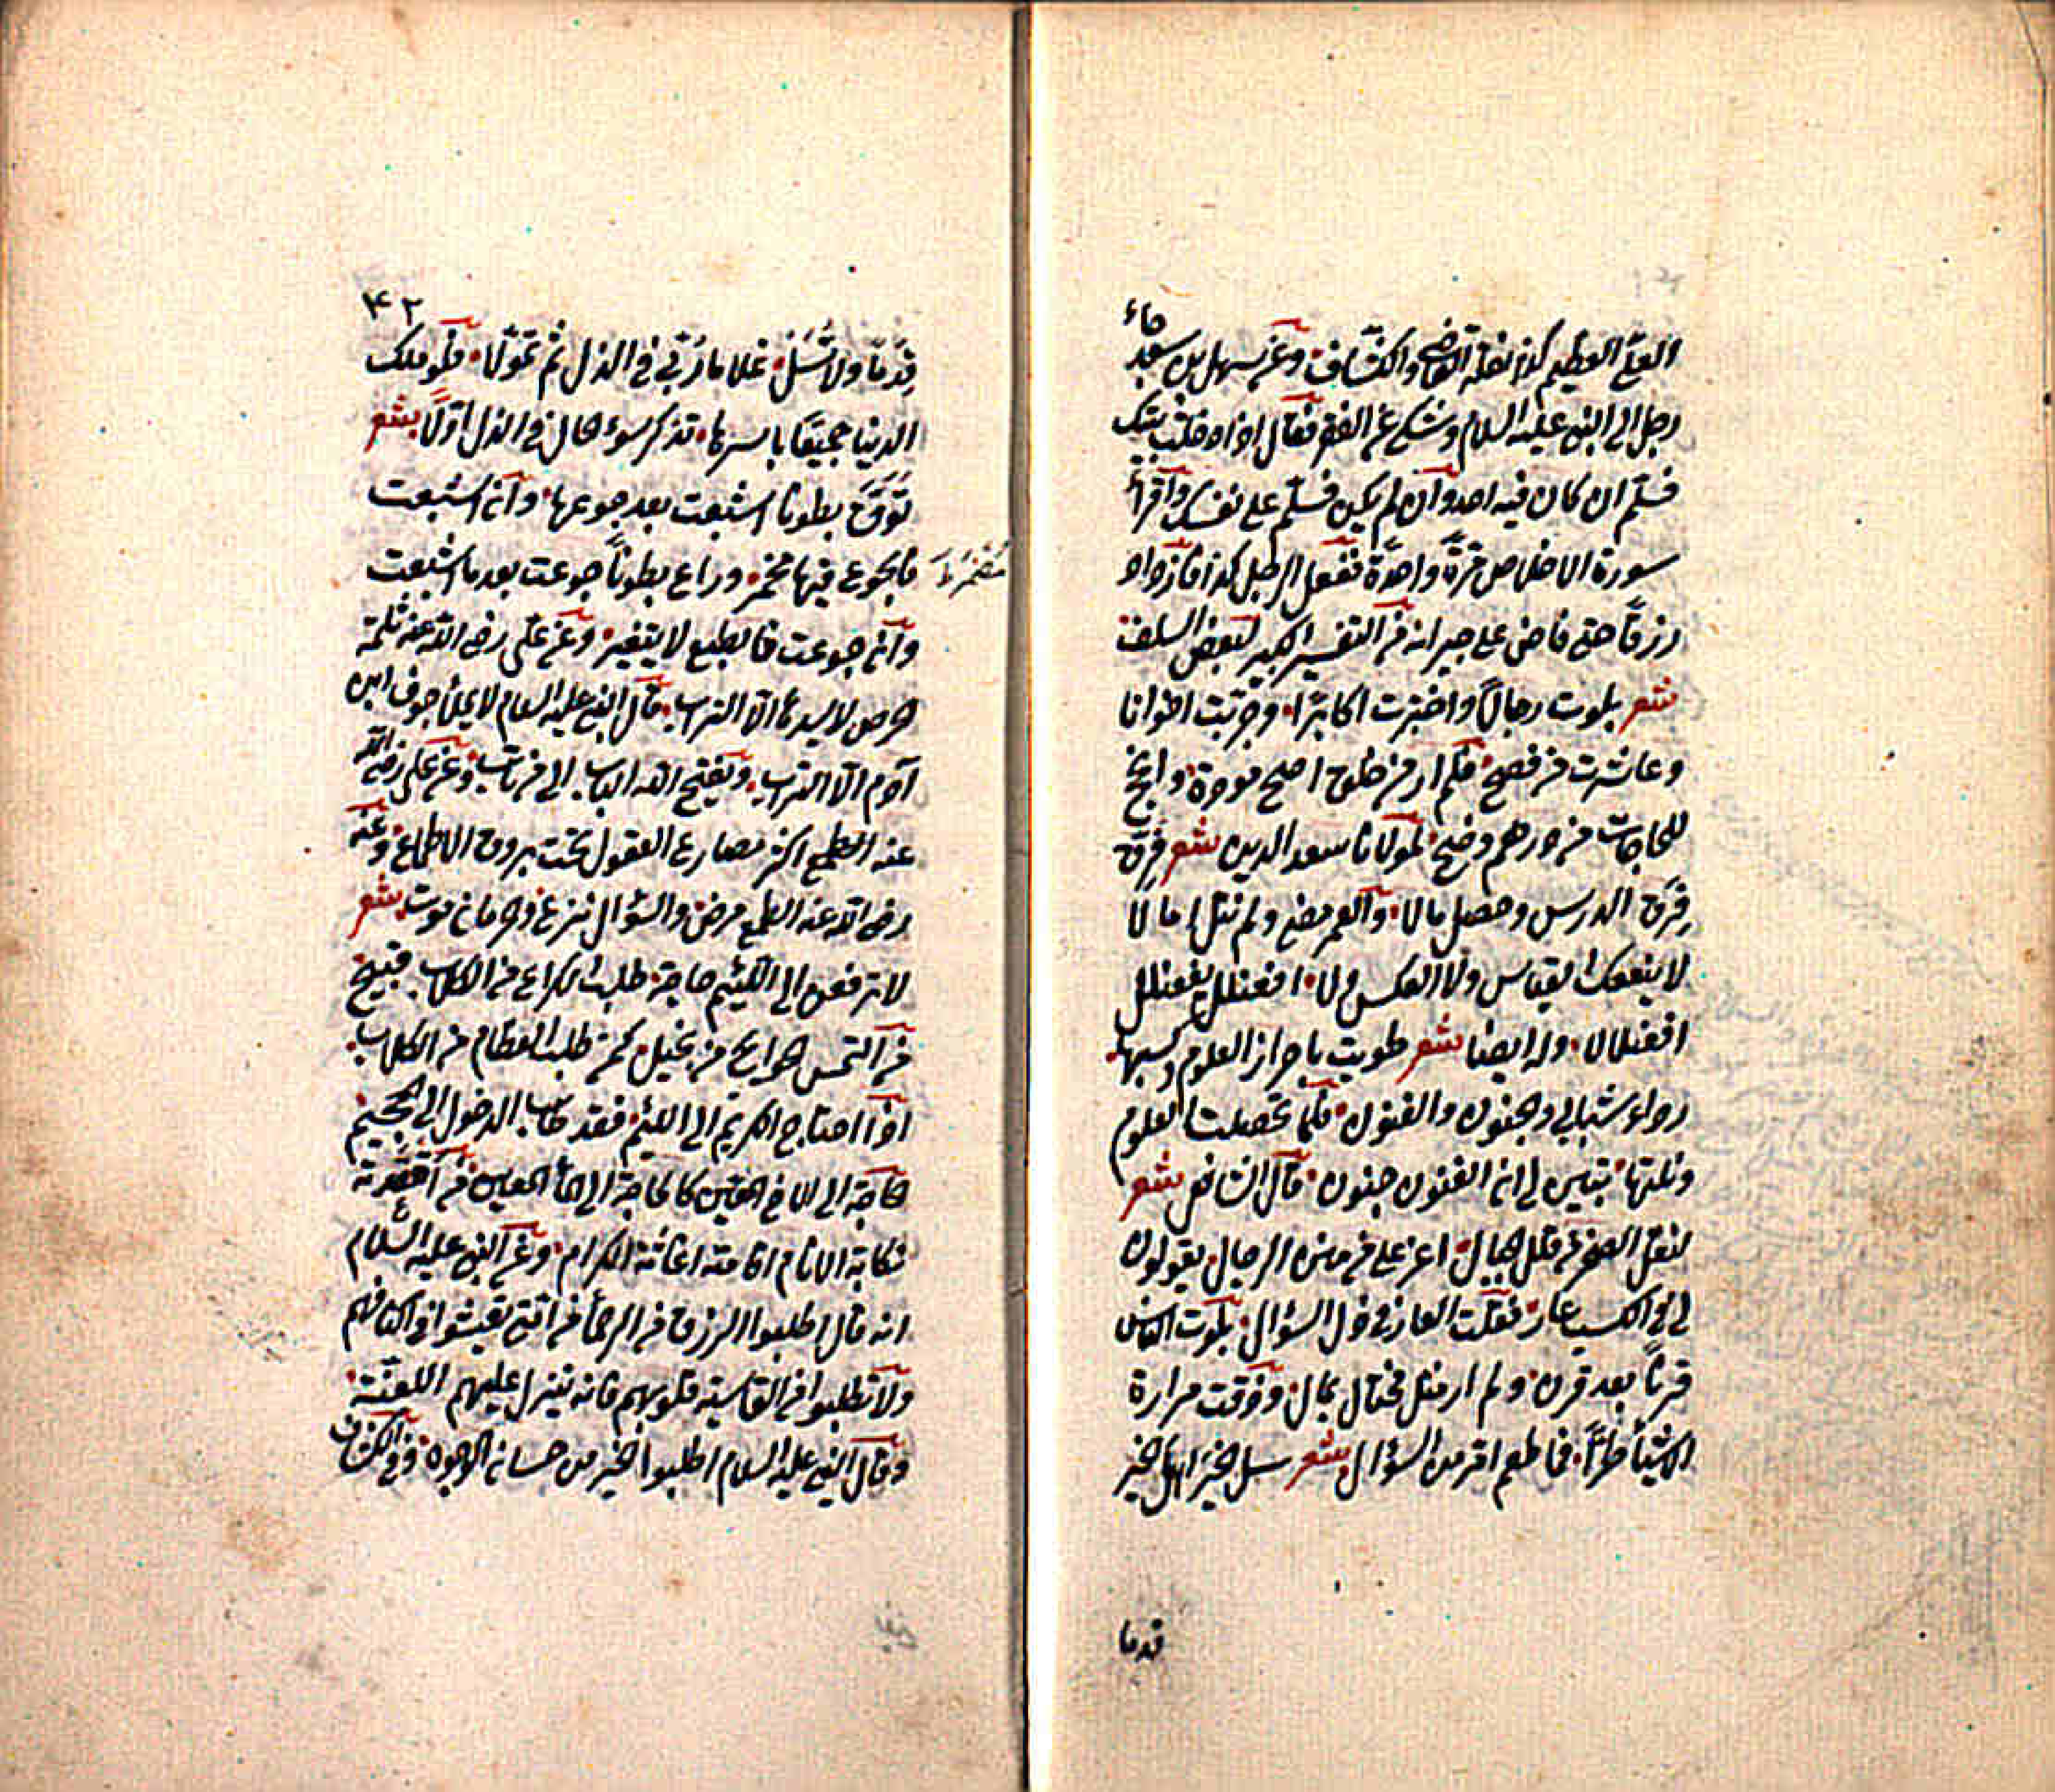 جاء
العلي العظيم كذا نقله القاضي والكشاف وعن سهل بن سعد
رجل الى النبي عليه السلام وشكى عن الفقر فقال اذا دخلت بيتك
فسلم ان كان فيه احد وان لم يكن فسلم على نفسك واقرأ
سورة الاخلاص مرة واحدة ففعل الرجل كذا فازداد
رزقا حتى فاض على جيرانه من التفسير الكبير لبعض السلف
شعر بلوت رجالا واختبرت اكابرا وجربت اخوانا
وعاشرت من فصح فلم ار من خلوق اصح مودة وانجح
للحاجات من درهم وضح لمولانا سعد الدين شعر فرق
فرق الدرس وحصل مالا والعمر مضى ولم تنل امالا
لا ينفعك القياس ولا العكس ولا افعنلل يفعنلل
افعنلالا وله ايضا شعر طويت باحراز العلوم وكسبها
رداء شبابي والجنون والفنون فلما تحصلت العلوم
ونلتها تبين لي ان الفنون جنون قال الشافعي شعر
لنقل الصخر من قلل الجبال اعز علي من منن الرجال يقولون
لي في الكسب عار فقلت العار في ذل السؤال بلوت الناس
قرنا بعد قرن ولم ار مثل مختال بمال وذقت مرارة
الاشياء طرا فما طعم امر من السؤال شعر سل الخير اهل الخير
قدما
٤٢
قدما ولا تسل غلاما ربي في الذل ثم تمولا فلو ملك
الدنيا جميعا باسرها تذكر سوء الحال في الذل اولا شعر
توق بطونا اشبعت بعد جوعها وان اشبعت
فالجوع فيها مخمر وراع بطونا جوعت بعد ما اشبعت
وان جوعت فالطبع لا يتغير وعن علي رضي الله عنه ثلمة
الحرص لا يسدها الا التراب قال النبي عليه السلام لا يملأ جوف ابن
آدم الا التراب ويفتح الله الباب الى من تاب وعن علي رضي الله
عنه الطمع اكثر مصارع العقول تحت بروق الاطماع وعنه
رضي الله عنه الطمع مرض والسؤال نزع والحرمان موت شعر
لا ترفعن الى اللئيم حاجة طلب الكراع من الكلاب قبيح
من التمس الحوايج من بخيل كمن طلب العظام من الكلاب
اذا احتاج الكريم الى اللئيم فقد طاب الدخول الى الجحيم
الحاجة الى الاخ المعين كالحاجة الى الماء المعين من اقعدته
نكاية الانام اقامته اغاثة الكرام وعن النبي عليه السلام
انه قال اطلبوا الرزق من الرحماء من امتي تعيشوا في اكنافهم
ولا تطلبوا من القاسية قلوبهم فانه تنزل عليهم اللعنة
وقال النبي عليه السلام اطلبوا الخير من حسان الوجوه
مضمر